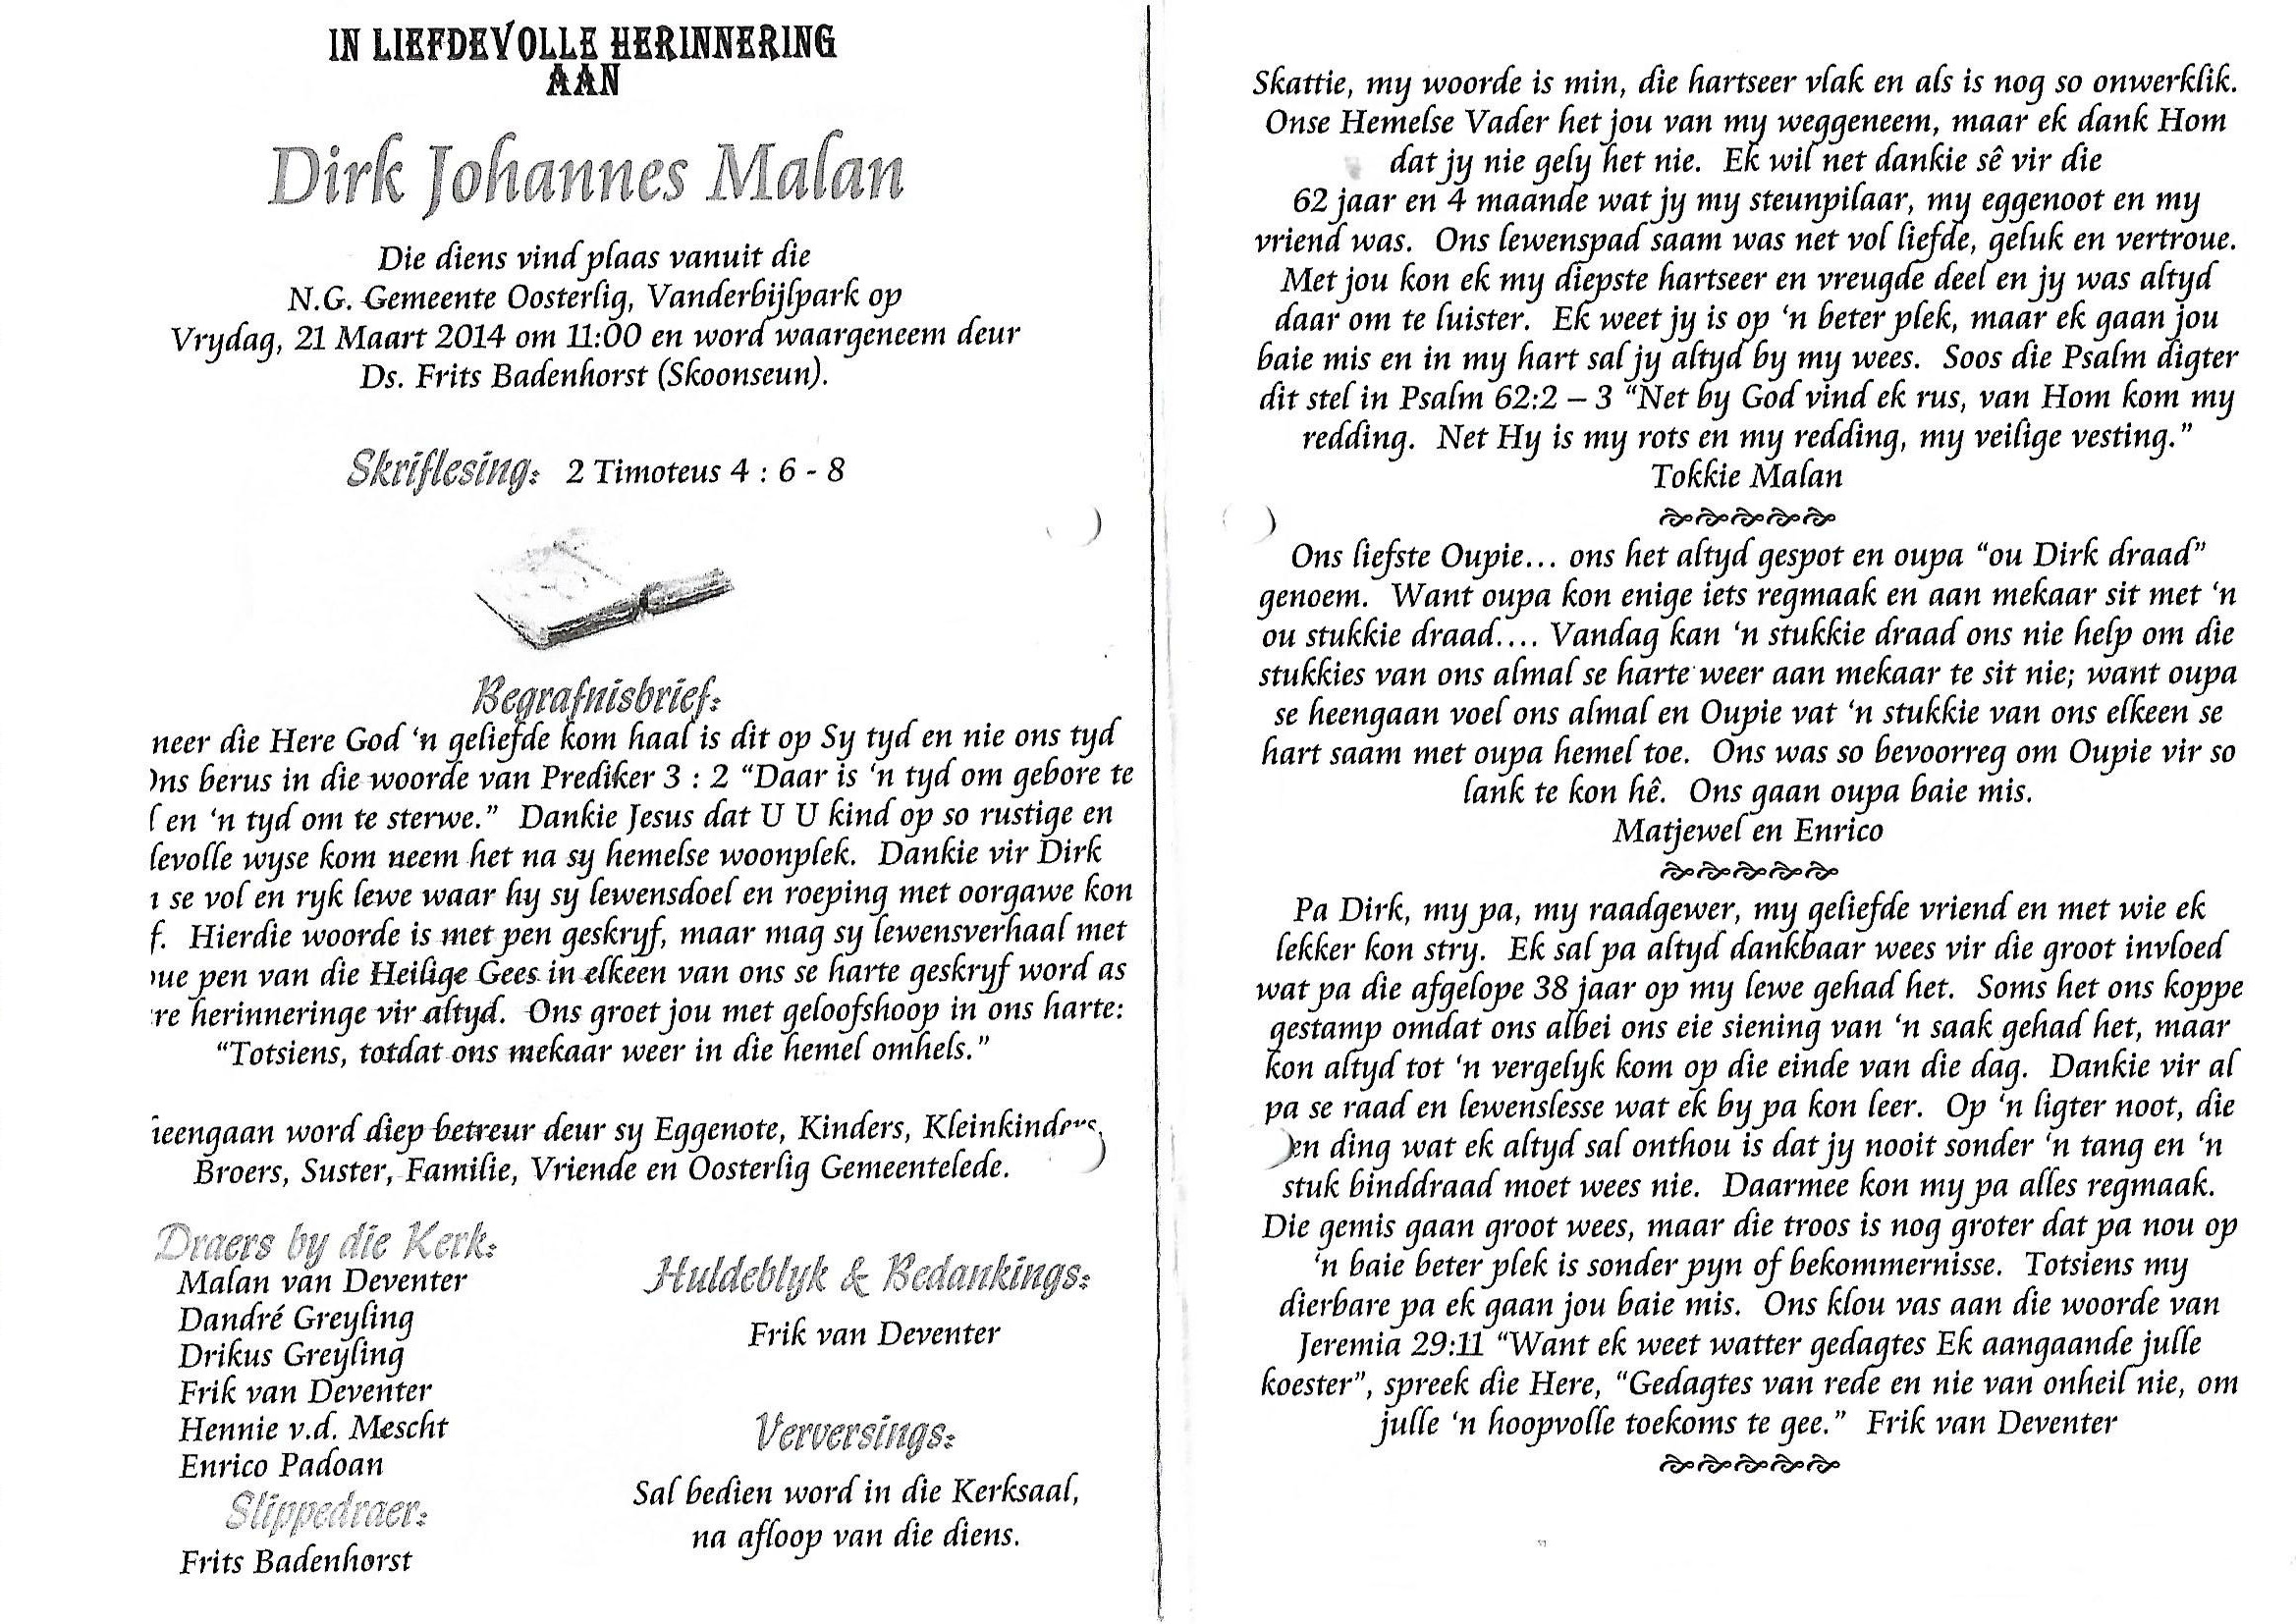 IN LIEFDEVOLLE HERINNERING
AAN
Dirk Johannes Malan
Die diens vind plaas vanuit die
N.G. Gemeente Oosterlig, Vanderbijlpark op
Vrydag, 21 Maart 2014 om 11:00 en word waargeneem deur
Ds. Frits Badenhorst (Skoonseun).
Skriflesing: 2 Timoteus 4 : 6 - 8
Begrafnisbrief:
neer die Here God ‘n geliefde kom haal is dit op Sy tyd en nie ons tyd
Ons berus in die woorde van Prediker 3 : 2 “Daar is ‘n tyd om gebore te
en ‘n tyd om te sterwe.” Dankie Jesus dat U U kind op so rustige en
levolle wyse kom neem het na sy hemelse woonplek. Dankie vir Dirk
se vol en ryk lewe waar hy sy lewensdoel en roeping met oorgawe kon
f. Hierdie woorde is met pen geskryf, maar mag sy lewensverhaal met
ue pen van die Heilige Gees in elkeen van ons se harte geskryf word as
re herinneringe vir altyd. Ons groet jou met geloofshoop in ons harte:
“Totsiens, totdat ons mekaar weer in die hemel omhels.”
eengaan word diep betreur deur sy Eggenote, Kinders, Kleinkinders,
Broers, Suster, Familie, Vriende en Oosterlig Gemeentelede.
Draers by die Kerk:
Malan van Deventer
Dandré Greyling
Drikus Greyling
Frik van Deventer
Hennie v.d. Mescht
Enrico Padoan
Slippedraer:
Frits Badenhorst
Huldeblyk & Bedankings:
Frik van Deventer
Verversings:
Sal bedien word in die Kerksaal,
na afloop van die diens.
Skattie, my woorde is min, die hartseer vlak en als is nog so onwerklik.
Onse Hemelse Vader het jou van my weggeneem, maar ek dank Hom
dat jy nie gely het nie. Ek wil net dankie sê vir die
62 jaar en 4 maande wat jy my steunpilaar, my eggenoot en my
vriend was. Ons lewenspad saam was net vol liefde, geluk en vertroue.
Met jou kon ek my diepste hartseer en vreugde deel en jy was altyd
daar om te luister. Ek weet jy is op ‘n beter plek, maar ek gaan jou
baie mis en in my hart sal jy altyd by my wees. Soos die Psalm digter
dit stel in Psalm 62:2 – 3 “Net by God vind ek rus, van Hom kom my
redding. Net Hy is my rots en my redding, my veilige vesting.”
Tokkie Malan
Ons liefste Oupie... ons het altyd gespot en oupa “ou Dirk draad”
genoem. Want oupa kon enige iets regmaak en aan mekaar sit met ‘n
ou stukkie draad.... Vandag kan ‘n stukkie draad ons nie help om die
stukkies van ons almal se harte weer aan mekaar te sit nie; want oupa
se heengaan voel ons almal en Oupie vat ‘n stukkie van ons elkeen se
hart saam met oupa hemel toe. Ons was so bevoorreg om Oupie vir so
lank te kon hê. Ons gaan oupa baie mis.
Matjewel en Enrico
Pa Dirk, my pa, my raadgewer, my geliefde vriend en met wie ek
lekker kon stry. Ek sal pa altyd dankbaar wees vir die groot invloed
wat pa die afgelope 38 jaar op my lewe gehad het. Soms het ons koppe
gestamp omdat ons albei ons eie siening van ‘n saak gehad het, maar
kon altyd tot ‘n vergelyk kom op die einde van die dag. Dankie vir al
pa se raad en lewenslesse wat ek by pa kon leer. Op ‘n ligter noot, die
en ding wat ek altyd sal onthou is dat jy nooit sonder ‘n tang en ‘n
stuk binddraad moet wees nie. Daarmee kon my pa alles regmaak.
Die gemis gaan groot wees, maar die troos is nog groter dat pa nou op
‘n baie beter plek is sonder pyn of bekommernisse. Totsiens my
dierbare pa ek gaan jou baie mis. Ons klou vas aan die woorde van
Jeremia 29:11 “Want ek weet watter gedagtes Ek aangaande julle
koester”, spreek die Here, “Gedagtes van rede en nie van onheil nie, om
julle ‘n hoopvolle toekoms te gee.” Frik van Deventer